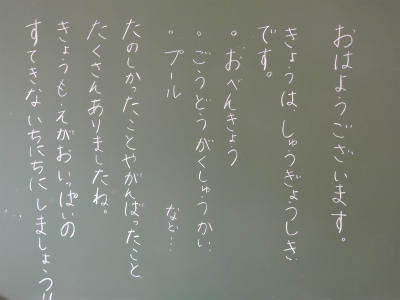 おはようございます。
きょうは、しゅうぎょうしき
です。
。おべんきょう
。ごうどうがくしゅうかい
。プール　　　など…
たのしかったことやがんばったこと
たくさんありましたね。
きょうも、えがおいっぱいの
すてきないちにちにしましょう!!